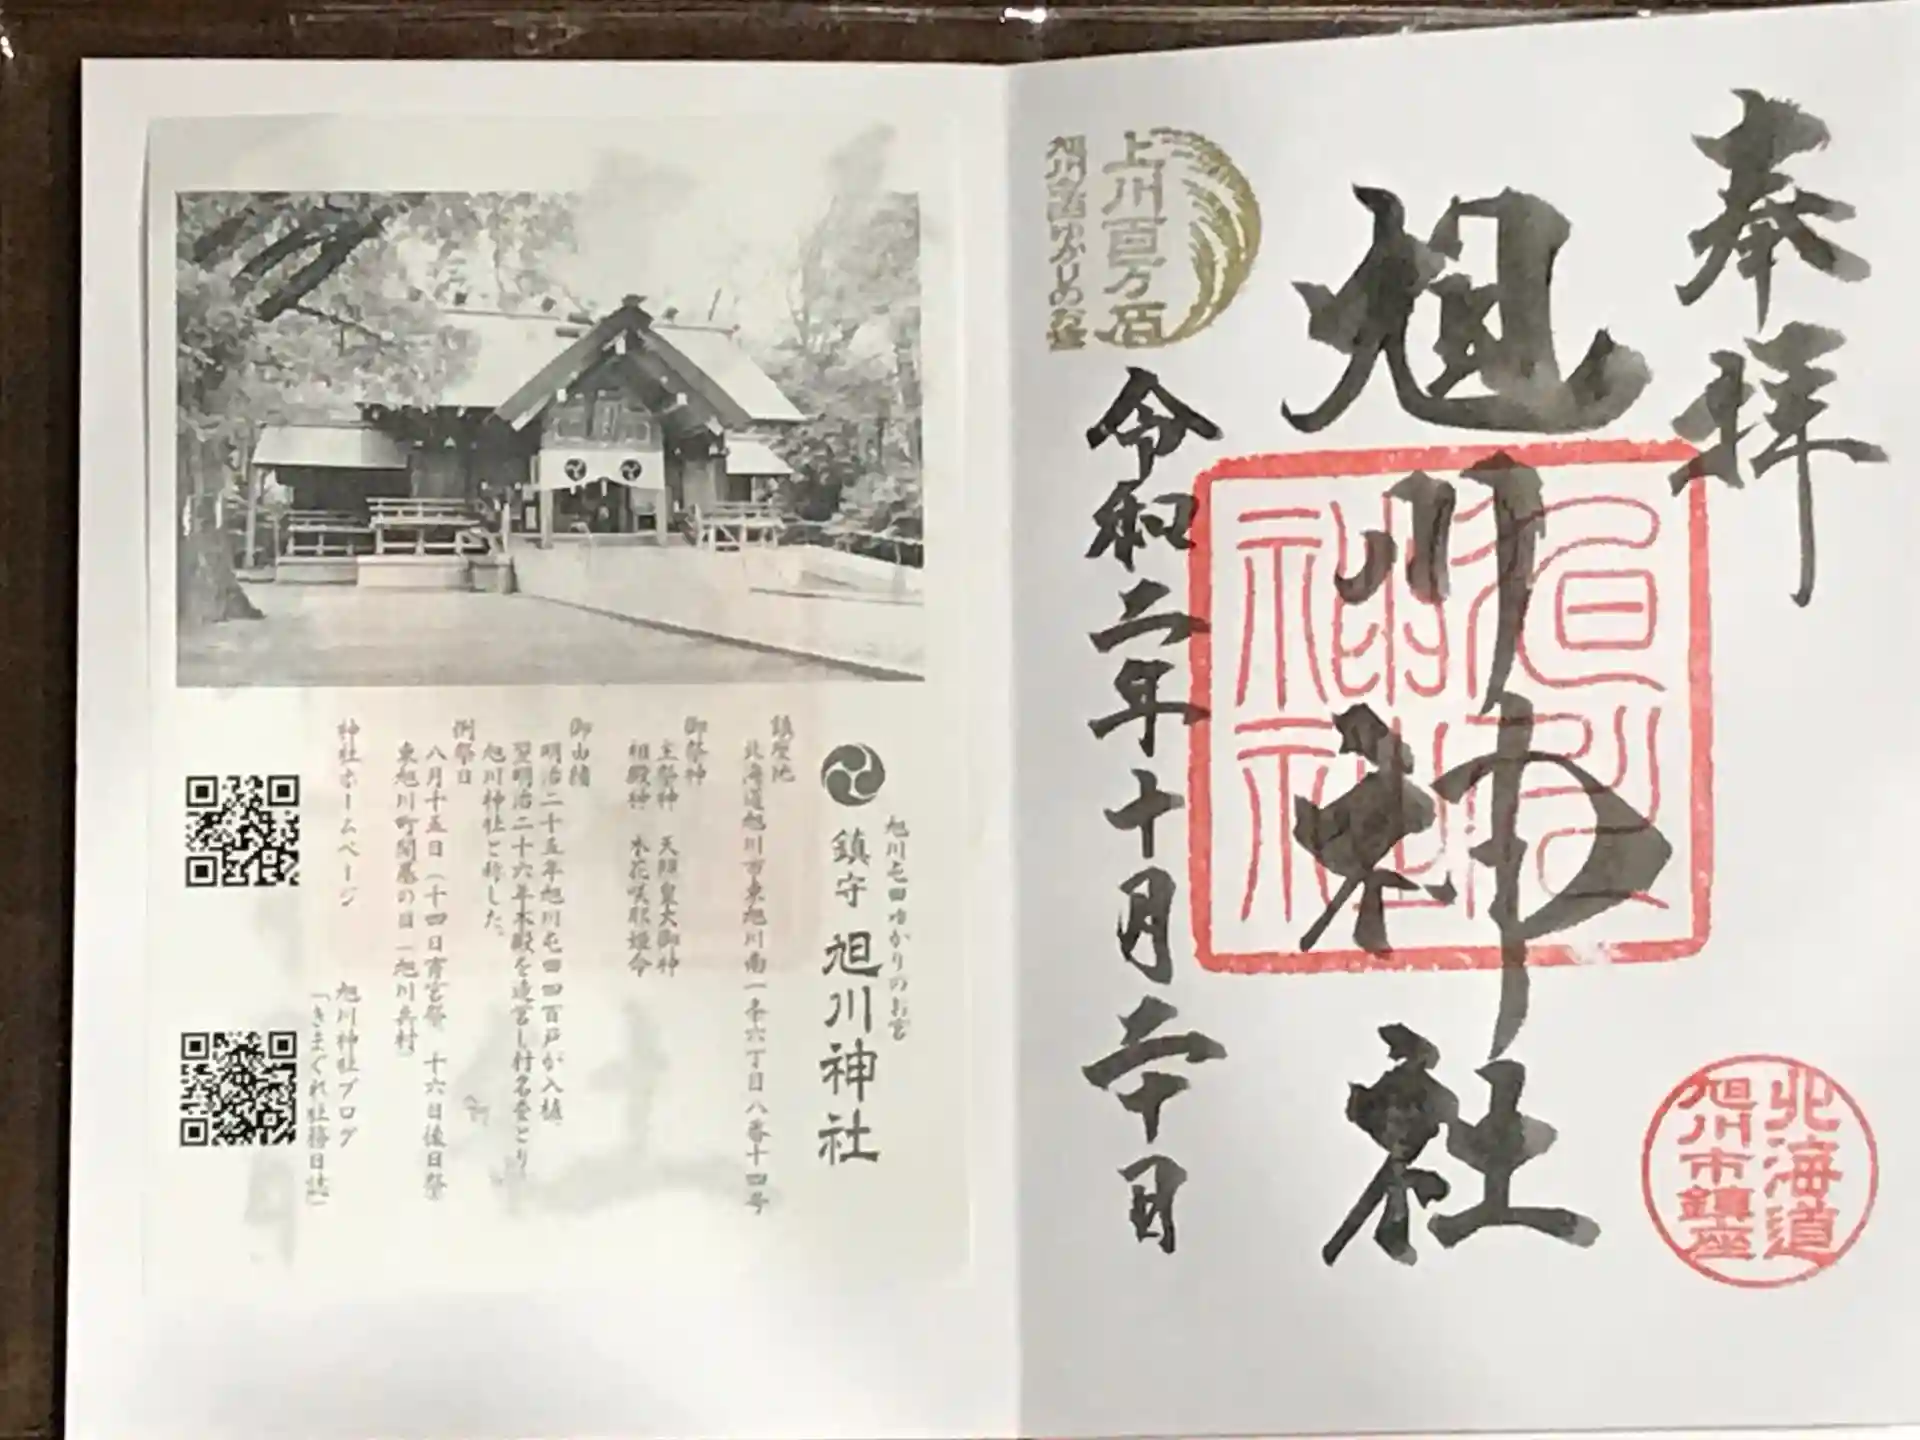 奉拝
旭川神社
令和二年十月二十日
上川百万石
旭川屯田ゆかりのお宮
旭川神社
北海道
旭川市鎮座
旭川屯田ゆかりのお宮
鎮守 旭川神社
鎮座地
北海道旭川市東旭川南一条六丁目八番十四号
御祭神
主祭神 天照皇大御神
相殿神 木花咲耶姫命
御由緒
明治二十五年旭川屯田四百戸が入植、
翌明治二十六年本殿を造営し村名をとり
旭川神社と称した。
例祭日
八月十五日(十四日宵宮祭 十六日後日祭
東旭川町開基の日(旭川兵村)
神社ホームページ
旭川神社ブログ
「きまぐれ社務日誌」